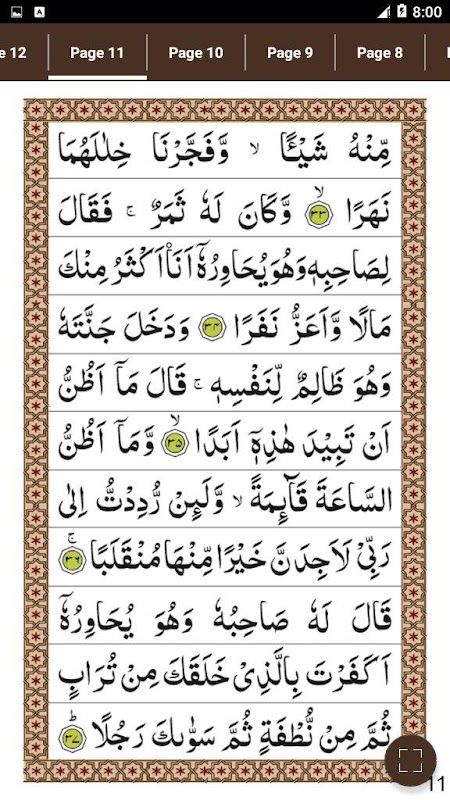 8:00
e 12 Page 11 Page 10 Page 9 Page 8
مِّنْهُ شَيْـًٔا ۙ وَّفَجَّرْنَا خِلٰلَهُمَا
نَهَرًا ۙ‏﴿۳۳﴾ وَّكَانَ لَهٗ ثَمَرٌ ۚ فَقَالَ
لِصَاحِبِهٖ وَهُوَ يُحَاوِرُهٗۤ اَنَا۠ اَكْثَرُ مِنْكَ
مَالًا وَّاَعَزُّ نَفَرًا ﴿۳۴﴾ وَدَخَلَ جَنَّتَهٗ
وَهُوَ ظَالِمٌ لِّنَفْسِهٖ ۚ قَالَ مَاۤ اَظُنُّ
اَنْ تَبِيْدَ هٰذِهٖۤ اَبَدًا ۙ﴿۳۵﴾ وَّمَاۤ اَظُنُّ
السَّاعَةَ قَآئِمَةً ۙ وَّلَئِنْ رُّدِدْتُّ اِلٰى
رَبِّىْ لَاَجِدَنَّ خَيْرًا مِّنْهَا مُنْقَلَبًا ۚ﴿۳۶﴾
قَالَ لَهٗ صَاحِبُهٗ وَهُوَ يُحَاوِرُهٗۤ
اَكَفَرْتَ بِالَّذِىْ خَلَقَكَ مِنْ تُرَابٍ
ثُمَّ مِنْ نُّطْفَةٍ ثُمَّ سَوّٰىكَ رَجُلًا ؕ﴿۳۷﴾
11